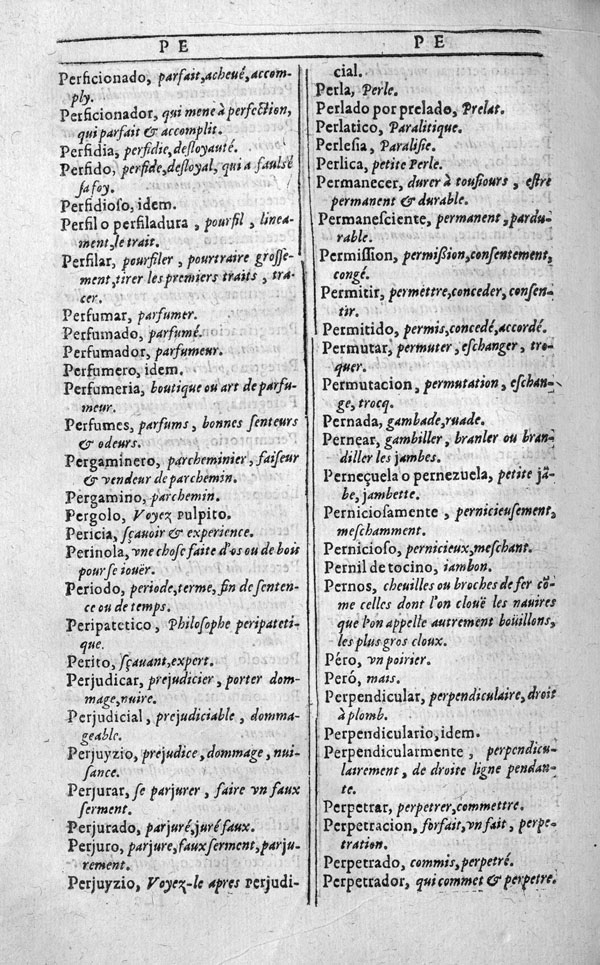 P E
Perficionado, parfait, acheué, accom-
ply.
Perficionador, qui mene à perfection,
qui parfait & accomplit.
Perfidia, perfidie, desloyauté.
Perfido, perfide, desloyal, qui a faulsé
sa foy.
Perfidioso, idem.
Perfil o perfiladura, pourfil, linea-
ment, le trait.
Perfilar, pourfiler, pourtraire grosse-
ment, tirer les premiers traits, tra-
cer.
Perfumar, parfumer.
Perfumado, parfumé.
Perfumador, parfumeur.
Perfumero, idem.
Perfumeria, boutique ou art de parfu-
meur.
Perfumes, parfums, bonnes senteurs
& odeurs.
Pergaminero, parcheminier, faiseur
& vendeur de parchemin.
Pergamino, parchemin.
Pergolo, Voyez Pulpito.
Pericia, sçauoir & experience.
Perinola, vne chose faite d'os ou de bois
pour se iouër.
Periodo, periode, terme, fin de senten-
ce ou de temps.
Peripatetico, Philosophe peripateti-
que.
Perito, sçauant, expert.
Perjudicar, prejudicier, porter dom-
mage, nuire.
Perjudicial, prejudiciable, domma-
geable.
Perjuyzio, prejudice, dommage, nui-
sance.
Perjurar, se parjurer, faire vn faux
serment.
Perjurado, parjuré, juré faux.
Perjuro, parjure, faux serment, parju-
rement.
Perjuyzio, Voyez-le apres Perjudi-
P E
cial.
Perla, Perle.
Perlado por prelado, Prelat.
Perlatico, Paralitique.
Perlesia, Paralisie.
Perlica, petite Perle.
Permanecer, durer à tousiours, estre
permanent & durable.
Permanesciente, permanent, pardu-
rable.
Permission, permission, consentement,
congé.
Permitir, permettre, conceder, consen-
tir.
Permitido, permis, concedé, accordé.
Permutar, permuter, eschanger, tro-
quer.
Permutacion, permutation, eschan-
ge, trocq.
Pernada, gambade, ruade.
Pernear, gambiller, branler ou bran-
diller les jambes.
Perneçuela o pernezuela, petite jã-
be, jambette.
Perniciosamente, pernicieusement,
meschamment.
Pernicioso, pernicieux, meschant.
Pernil de tocino, iambon.
Pernos, cheuilles ou broches de fer cõ-
me celles dont l'on clouë les nauires
que l'on appelle autrement boüillons,
les plus gros cloux.
Péro, vn poirier.
Peró, mais.
Perpendicular, perpendiculaire, droit
à plomb.
Perpendiculario, idem.
Perpendicularmente, perpendicu-
lairement, de droite ligne pendan-
te.
Perpetrar, perpetrer, commettre.
Perpetracion, forfait, vn fait, perpe-
tration.
Perpetrado, commis, perpetré.
Perpetrador, qui commet & perpetre.